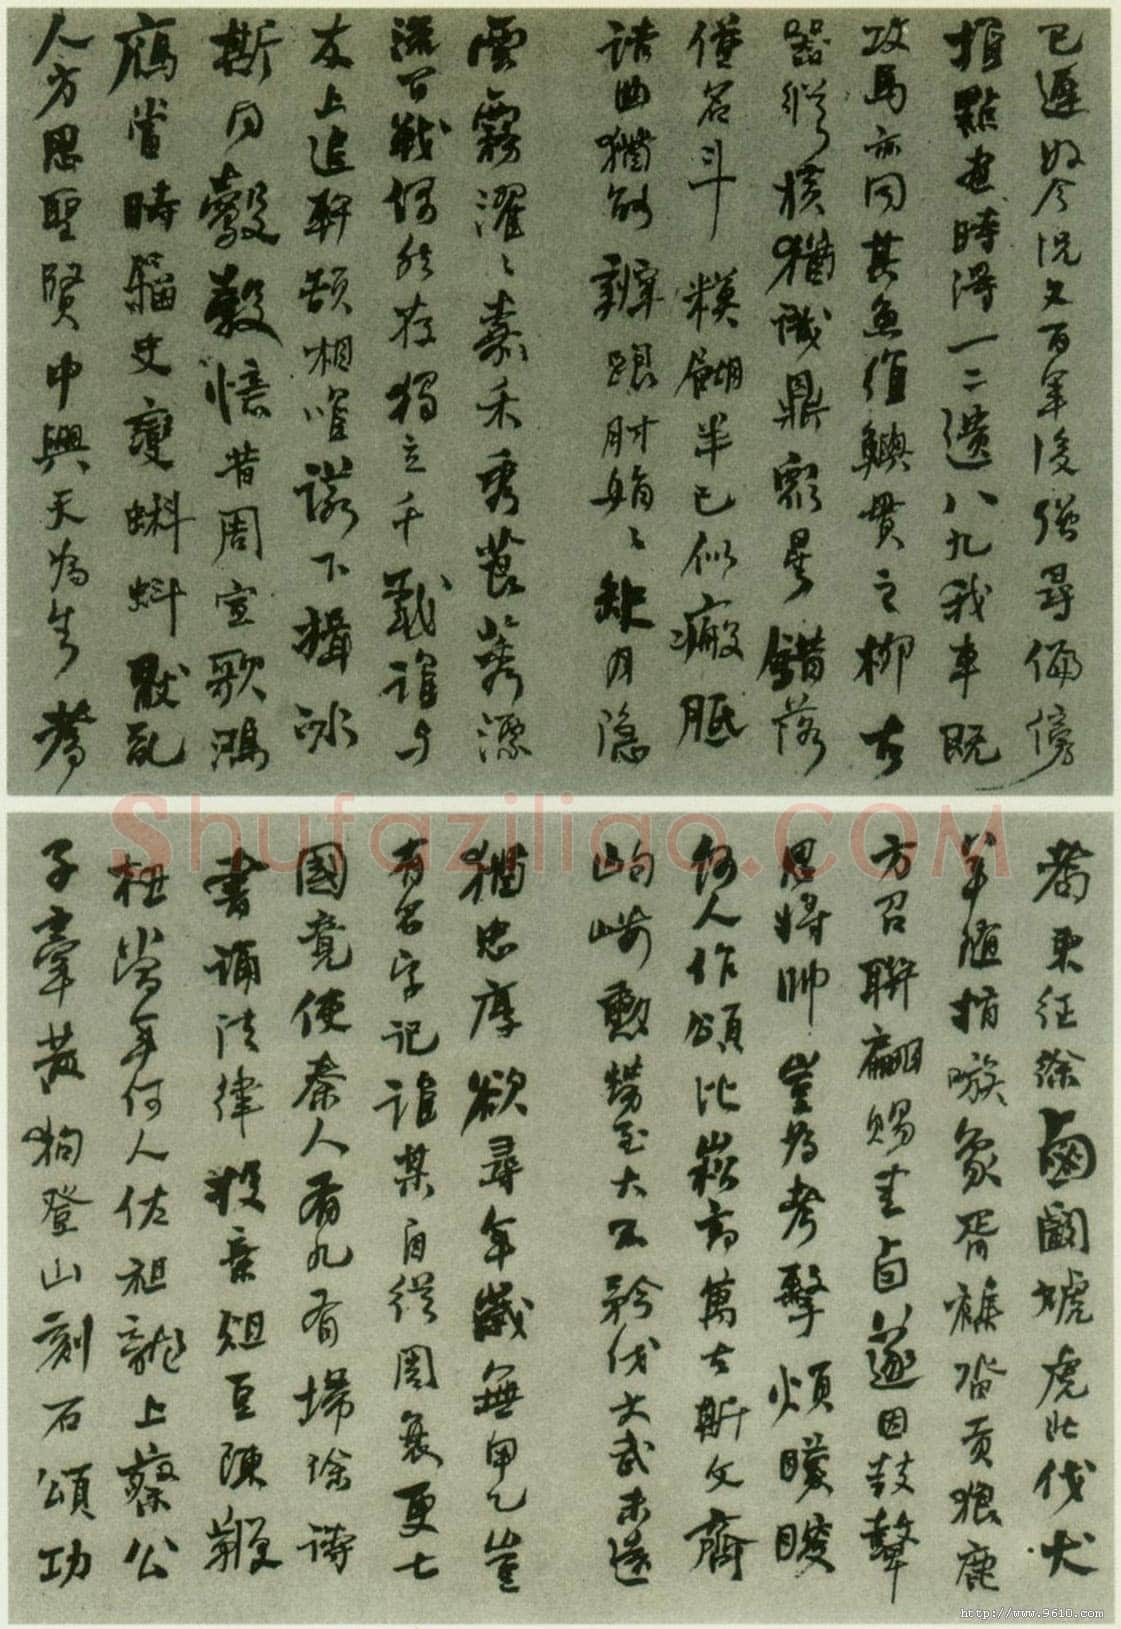 已遲如今況又百年後強尋偏傍
推點畫時得一二遺八九我車既
攻馬亦同其魚維鱮貫之柳古
器縱橫猶識鼎眾星錯落
僅名斗模糊半已似瘢胝
詰曲猶能辨跟肘娟々缺月隱
雲霧濯々嘉禾秀莨莠漂
流百戰偶然存獨立千載誰與
友上追軒頡相唯諾下揖冰
斯同鷇㝅憶昔周宣歌鴻
鴈當時籀史變蝌蚪厭亂
人方思聖賢中興天為生耆
耇東征徐虜闞虓虎北伐犬
戎隨指嗾象胥雜沓貢狼鹿
方召聯翩賜圭卣遂因鼓鼙
思將帥豈為考擊煩矇瞍
何人作頌比嵩高萬古斯文齊
岣嶁勳勞至大不矜伐文武未遠
猶忠厚欲尋年歲無甲乙豈
有名字記誰某自從周衰更七
國竟使秦人有九有掃除詩
書誦法律投棄俎豆陳鞭
杻當年何人佐祖龍上蔡公
子牽黃狗登山刻石頌功
Shufaziliao.COM
http://www.9610.com